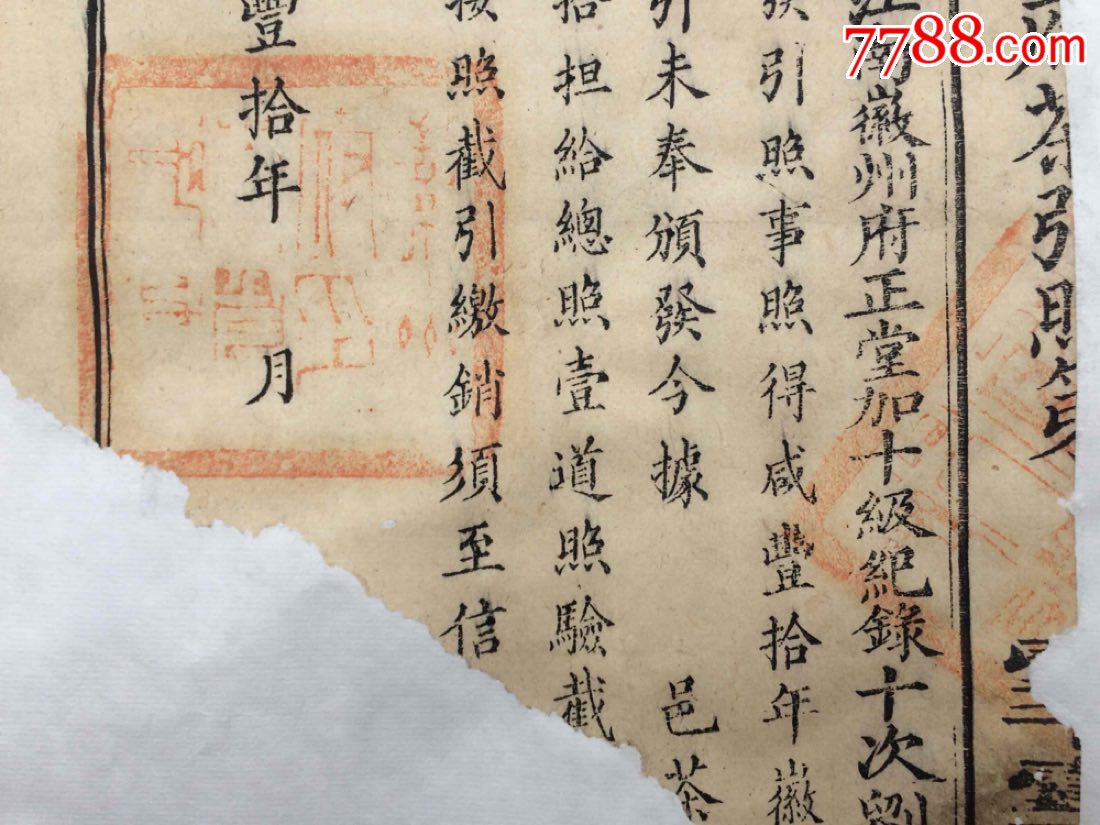 7788.com
茶引照
江南徽州府正堂加十級紀錄十次劉
發引照事照得咸豐拾年徽
引未奉頒發今據 邑茶
拾担給總照壹道照驗截
按照截引繳銷須至信
豐拾年 月